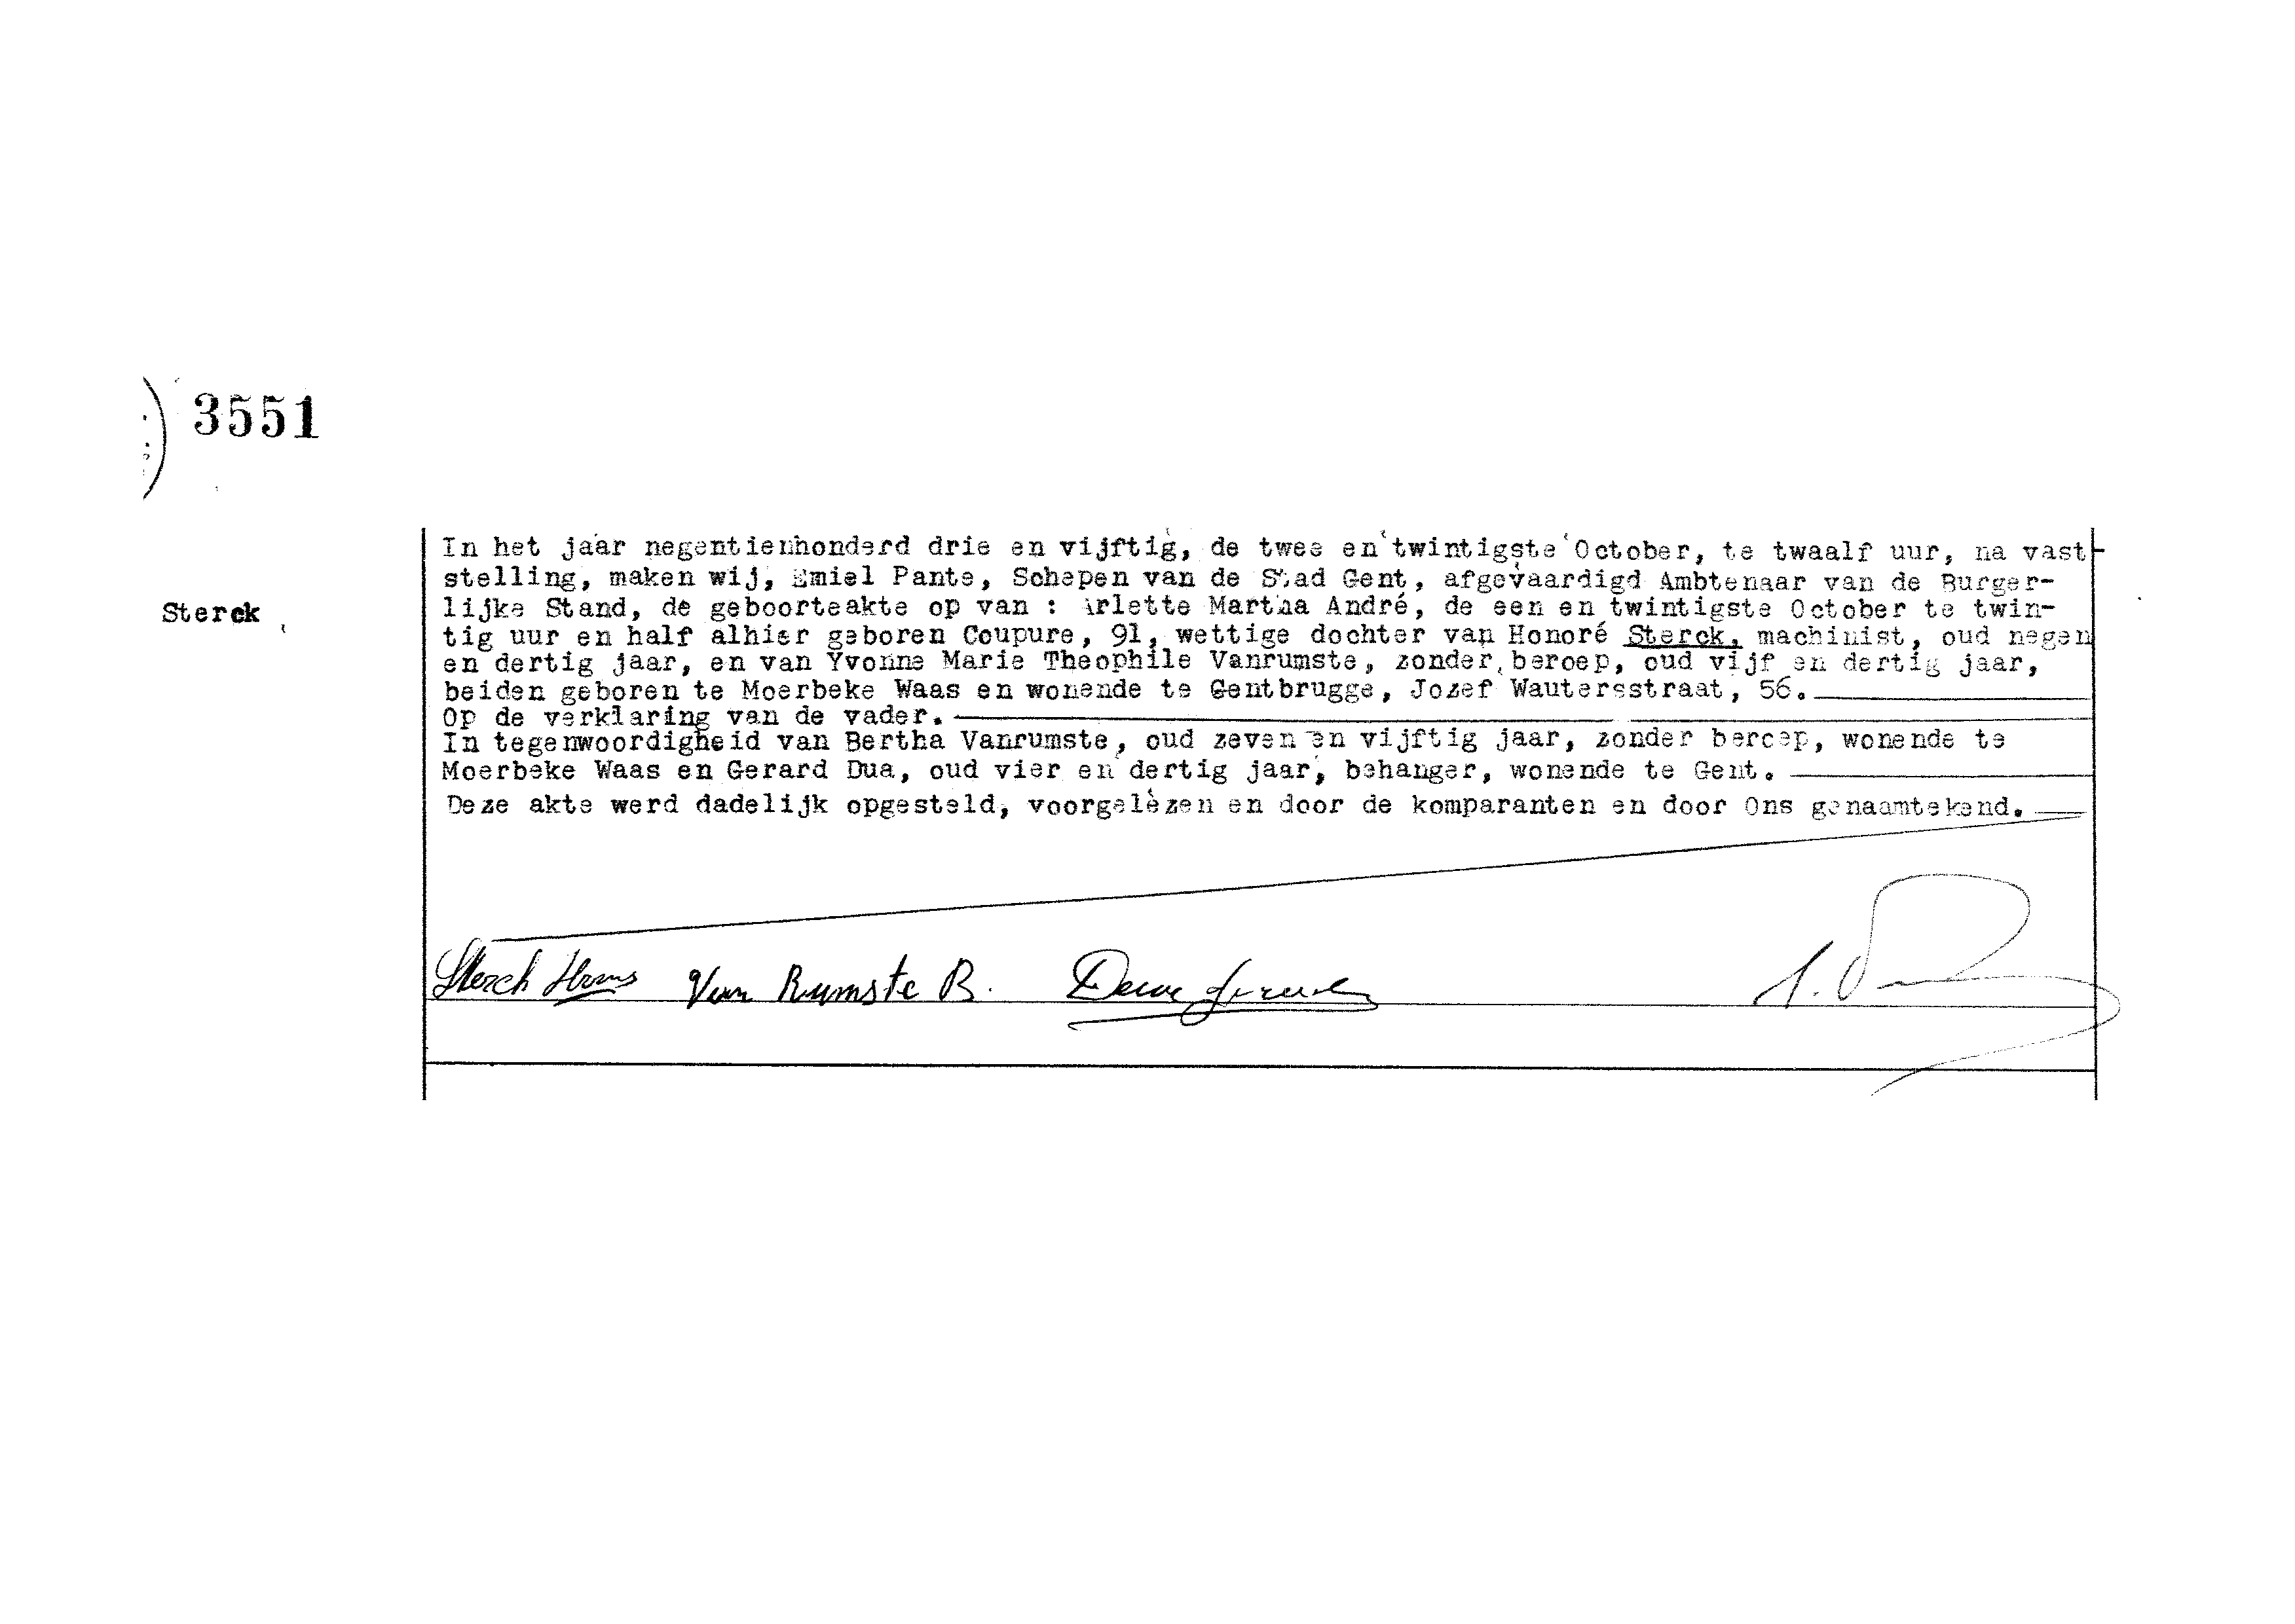 3551
In het jaar negentienhonderd drie en vijftig, de twee en twintigste October, te twaalf uur, na vast
stelling, maken wij, Emiel Pante, Schepen van de Stad Gent, afgevaardigd Ambtenaar van de Burger-
Sterck
lijke Stand, de geboorteakte op van : Arlette Martha André, de een en twintigste October te twin-
tig uur en half alhier geboren Coupure, 91, wettige dochter van Honoré Sterck, machinist, oud negen
en dertig jaar, en van Yvonne Marie Theophile Vanrumste, zonder beroep, oud vijf en dertig jaar,
beiden geboren te Moerbeke Waas en wonende te Gentbrugge, Jozef Wautersstraat, 56.
Op de verklaring van de vader.
In tegenwoordigheid van Bertha Vanrumste, oud zeven en vijftig jaar, zonder beroep, wonende te
Moerbeke Waas en Gerard Dua, oud vier en dertig jaar, behanger, wonende te Gent.
Deze akte werd dadelijk opgesteld, voorgelezen en door de komparanten en door Ons genaamtekend.
Sterck Van Rumste B.